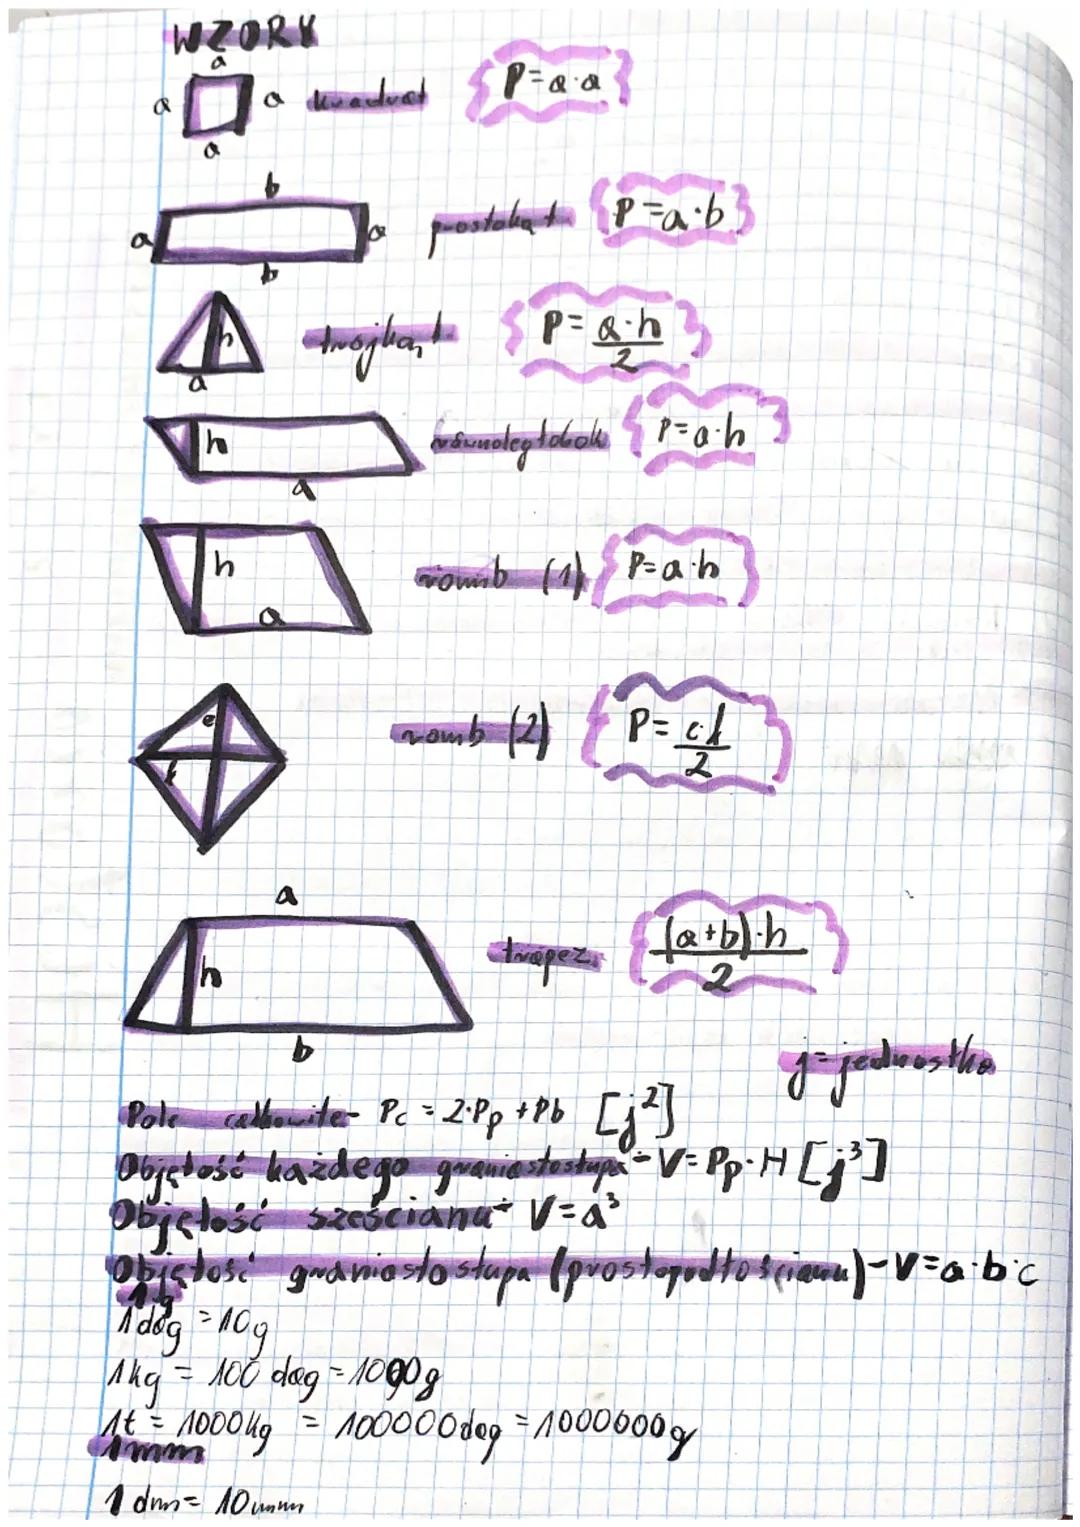 WZORY
a
a a kwadrat P=a·a
a
b
a a prostokąt P=a·b
b
h trójkąt P=a·h/2
a
h równoległobok P=a·h
a
h romb (1) P=a·h
a
e romb (2) P=
f 2
a
h trapez (a+b)·h/2
b
j=jednostka
Pole całkowite- Pc = 2·Pp +Pb [j²]
Objętość każdego graniastostupa - V=Pp·H [j³]
Objętość sześcianu- V=a³
Objętość graniastostupa (prostopadłościanu)-V=a·b·c
1g
1dag =10g
1kg = 100 dag =1000g
1t = 1000kg = 100000dag =1000000g
1mm